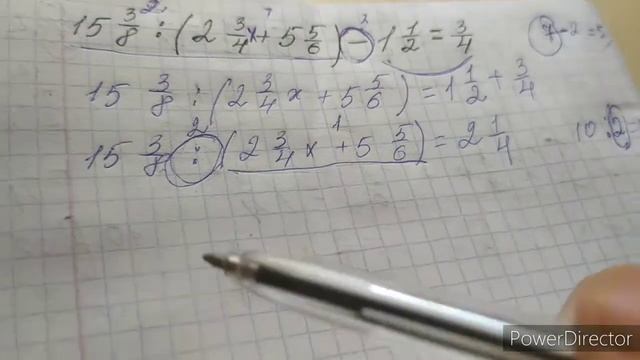 15 3/8 : (2 3/4 x + 5 5/6) - 1 1/2 = 3/4
15 3/8 : (2 3/4 x + 5 5/6) = 1 1/2 + 3/4
15 3/8 : (2 3/4 x + 5 5/6) = 2 1/4
7 - 2 = 5
10 : 2
PowerDirector